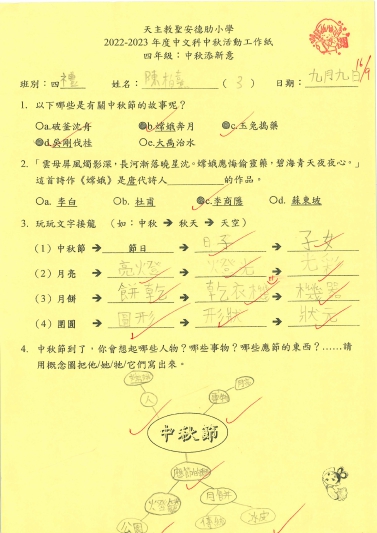 天主教聖安德肋小學
2022-2023 年度中文科中秋活動工作紙
四年級：中秋添新意
班別：四 禮 姓名：陳 （ 3 ） 日期：九月九日
16/9
1. 以下哪些是有關中秋節的故事呢？
a.破釜沈舟 b.嫦娥奔月 c.玉兔搗藥
d.吳剛伐桂 e.大禹治水
2. 「雲母屏風燭影深，長河漸落曉星沈。嫦娥應悔偷靈藥，碧海青天夜夜心。」
這首詩作《嫦娥》是唐代詩人________的作品。
a. 李白 b. 杜甫 c.李商隱 d. 蘇東坡
3. 玩玩文字接龍 （如：中秋 → 秋天 → 天空）
（1）中秋節 → 節日 → 日子 → 子女
（2）月亮 → 亮燈 → 燈七 → 光彩
（3）月餅 → 餅乾 → 乾衣機 → 機器
（4）團圓 → 圓形 → 形狀 → 狀元
4. 中秋節到了，你會想起哪些人物？哪些事物？哪些應節的東西？……請
用概念圖把他/她/牠/它們寫出來。
人
中秋節
月餅
冰皮
公園